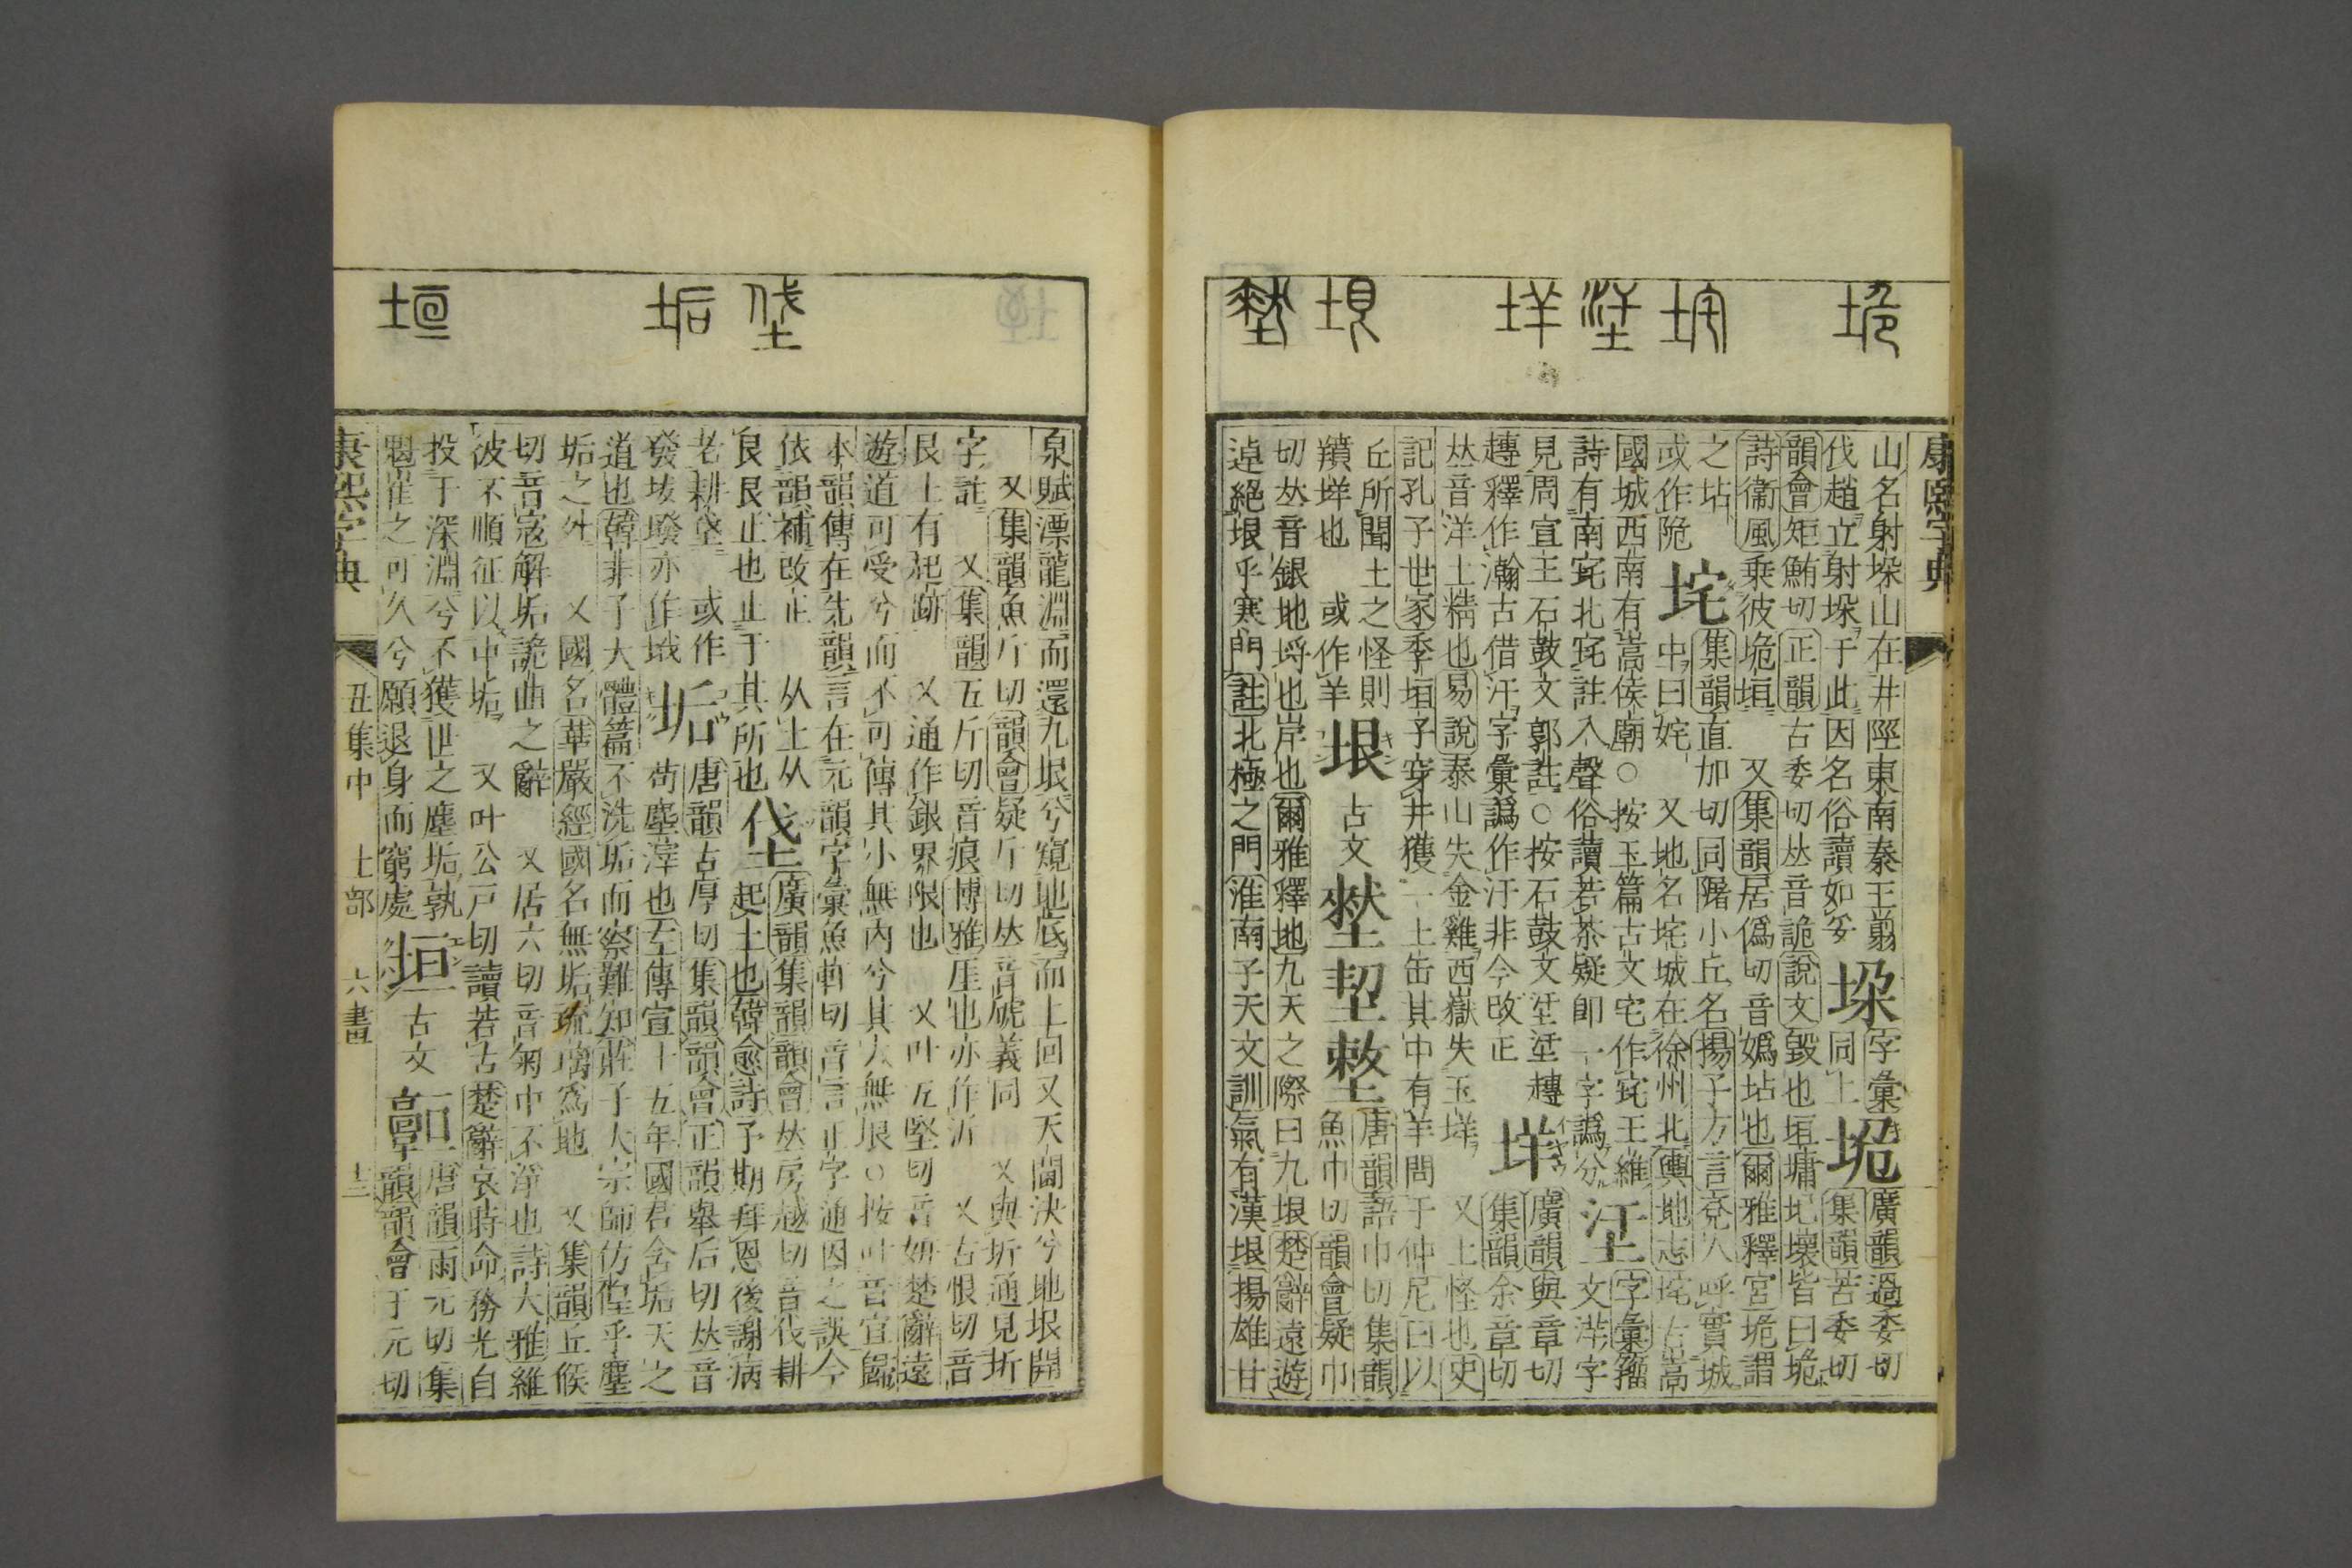 康熙字典
山名射垜山在井陘東南秦王翦
伐趙立射垜于此因名俗讀如妥
垜
字彙
同上
垝
廣韻過委切
集韻苦委切
韻會矩鮪切正韻古委切𠀤音詭說文毀也垣墉圮壞皆曰垝
詩衞風乗彼垝垣 又集韻居僞切音嬀坫也爾雅釋宮垝謂
之坫 集韻直加切同𨻼小丘名揚子方言兗人呼實城
或作陒
垞
中曰垞 又地名垞城在徐州北輿地志垞古嵩
國城西南有嵩侯廟○按玉篇古文宅作㡯王維
字彙籀
詩有南垞北垞註入聲俗讀若茶疑卽一字譌分
文泮字
見周宣王石鼓文郭註○按石鼓文
廣韻與章切
趬釋作瀚古借汗字彙譌作汙非今改正
垟
集韻余章切
𠀤音洋土精也易說泰山失金雞西嶽失玉垟 又土怪也史
記孔子世家季垣子穿井獲一土缶其中有羊問于仲尼曰以
丘所聞土之怪則
羵垟也 或作羊
垠
古文
唐韻語巾切集韻
魚巾切韻會疑巾
切𠀤音銀地埒也岸也爾雅釋地九天之際曰九垠楚辭遠遊
逴絕垠乎寒門註北極之門淮南子天文訓氣有漢垠揚雄甘
泉賦漂龍淵而還九垠兮窺地底而上回又天閫決兮地垠開
又集韻魚斤切韻會疑斤切𠀤音虓義同 又與圻通見圻
字註 又集韻五斤切音痕博雅厓也亦作沂 又古恨切音
艮土有起跡 又通作銀界限也 又叶五堅切音姸楚辭遠
遊道可受兮而不可傳其小無內兮其大無垠○按叶音宜歸
本韻傳在先韻言在元韻字彙魚軒切音言正字通因之誤今
依韻補改正 从土从
艮艮止也止于其所也
垡
廣韻集韻韻會𠀤房越切音伐耕
起土也韓愈詩予期拜恩後謝病
老耕垡 或作
發坺墢亦作㘺
垢
唐韻古厚切集韻韻會正韻舉后切𠀤音
苟塵滓也左傳宣十五年國君含垢天之
道也韓非子大體篇不洗垢而察難知莊子大宗師仿偟乎塵
垢之外 又國名華嚴經國名無垢琉璃爲地 又集韻丘候
切音寇解垢詭曲之辭 又居六切音匊中不潔也詩大雅維
彼不順征以中垢 又叶公戸切讀若古楚辭哀時命務光自
投于深淵兮不獲世之塵垢孰
魁摧之可久兮願退身而窮處
垣
古文
唐韻雨元切集
韻韻會于元切
康熙字典
丑集中 土部 六畫